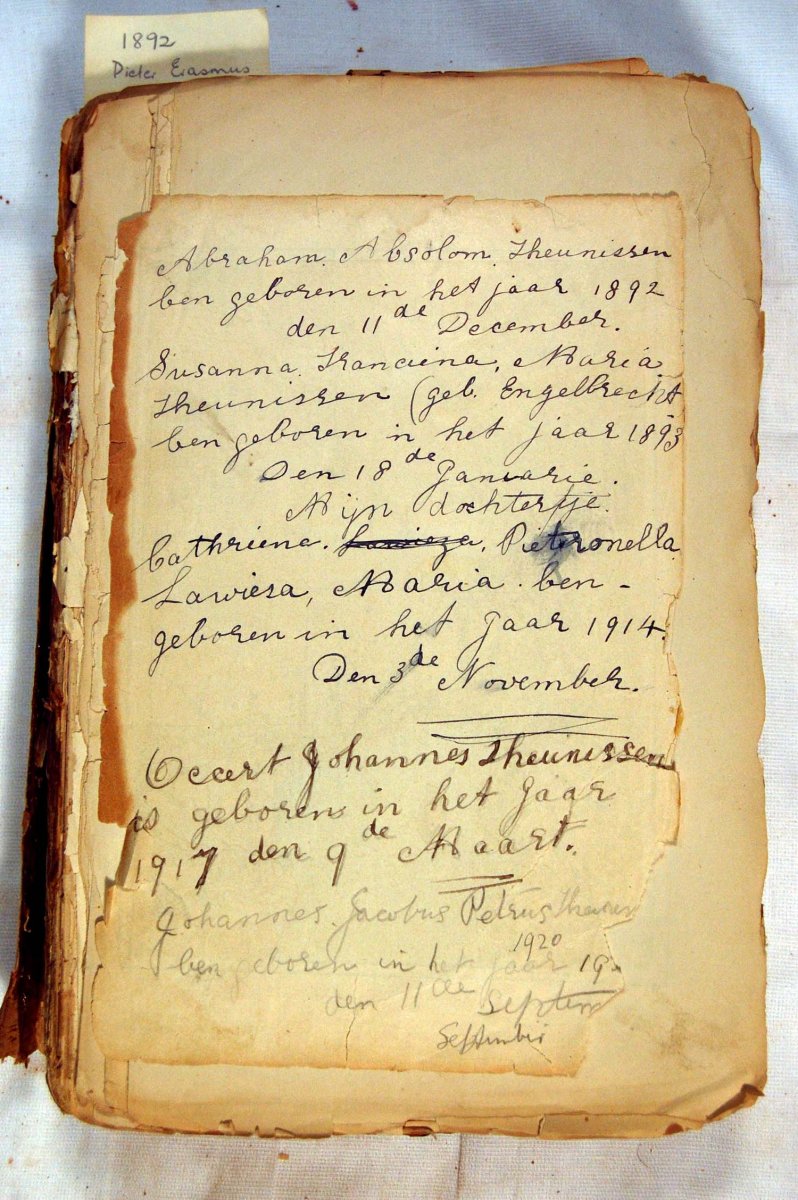 1892
Pieter Erasmus
Abraham. Absolom. Theunissen
ben geboren in het jaar 1892
den 11de December.
Susanna. Francina. Maria.
Theunissen (geb. Engelbrecht
ben geboren in het jaar 1893
Den 18de Januarie.
Mijn dochtertje.
Cathriena. Lawieza, Pietronella
Lawiesa, Maria. ben -
geboren in het jaar 1914.
Den 3de November.
Occert Johannes Theunissen
is geboren in het Jaar
1917 den 9de Maart.
Johannes Jacobus Petrus Theunissen
1920
ben geboren in het jaar 19
den 11de Septem
September